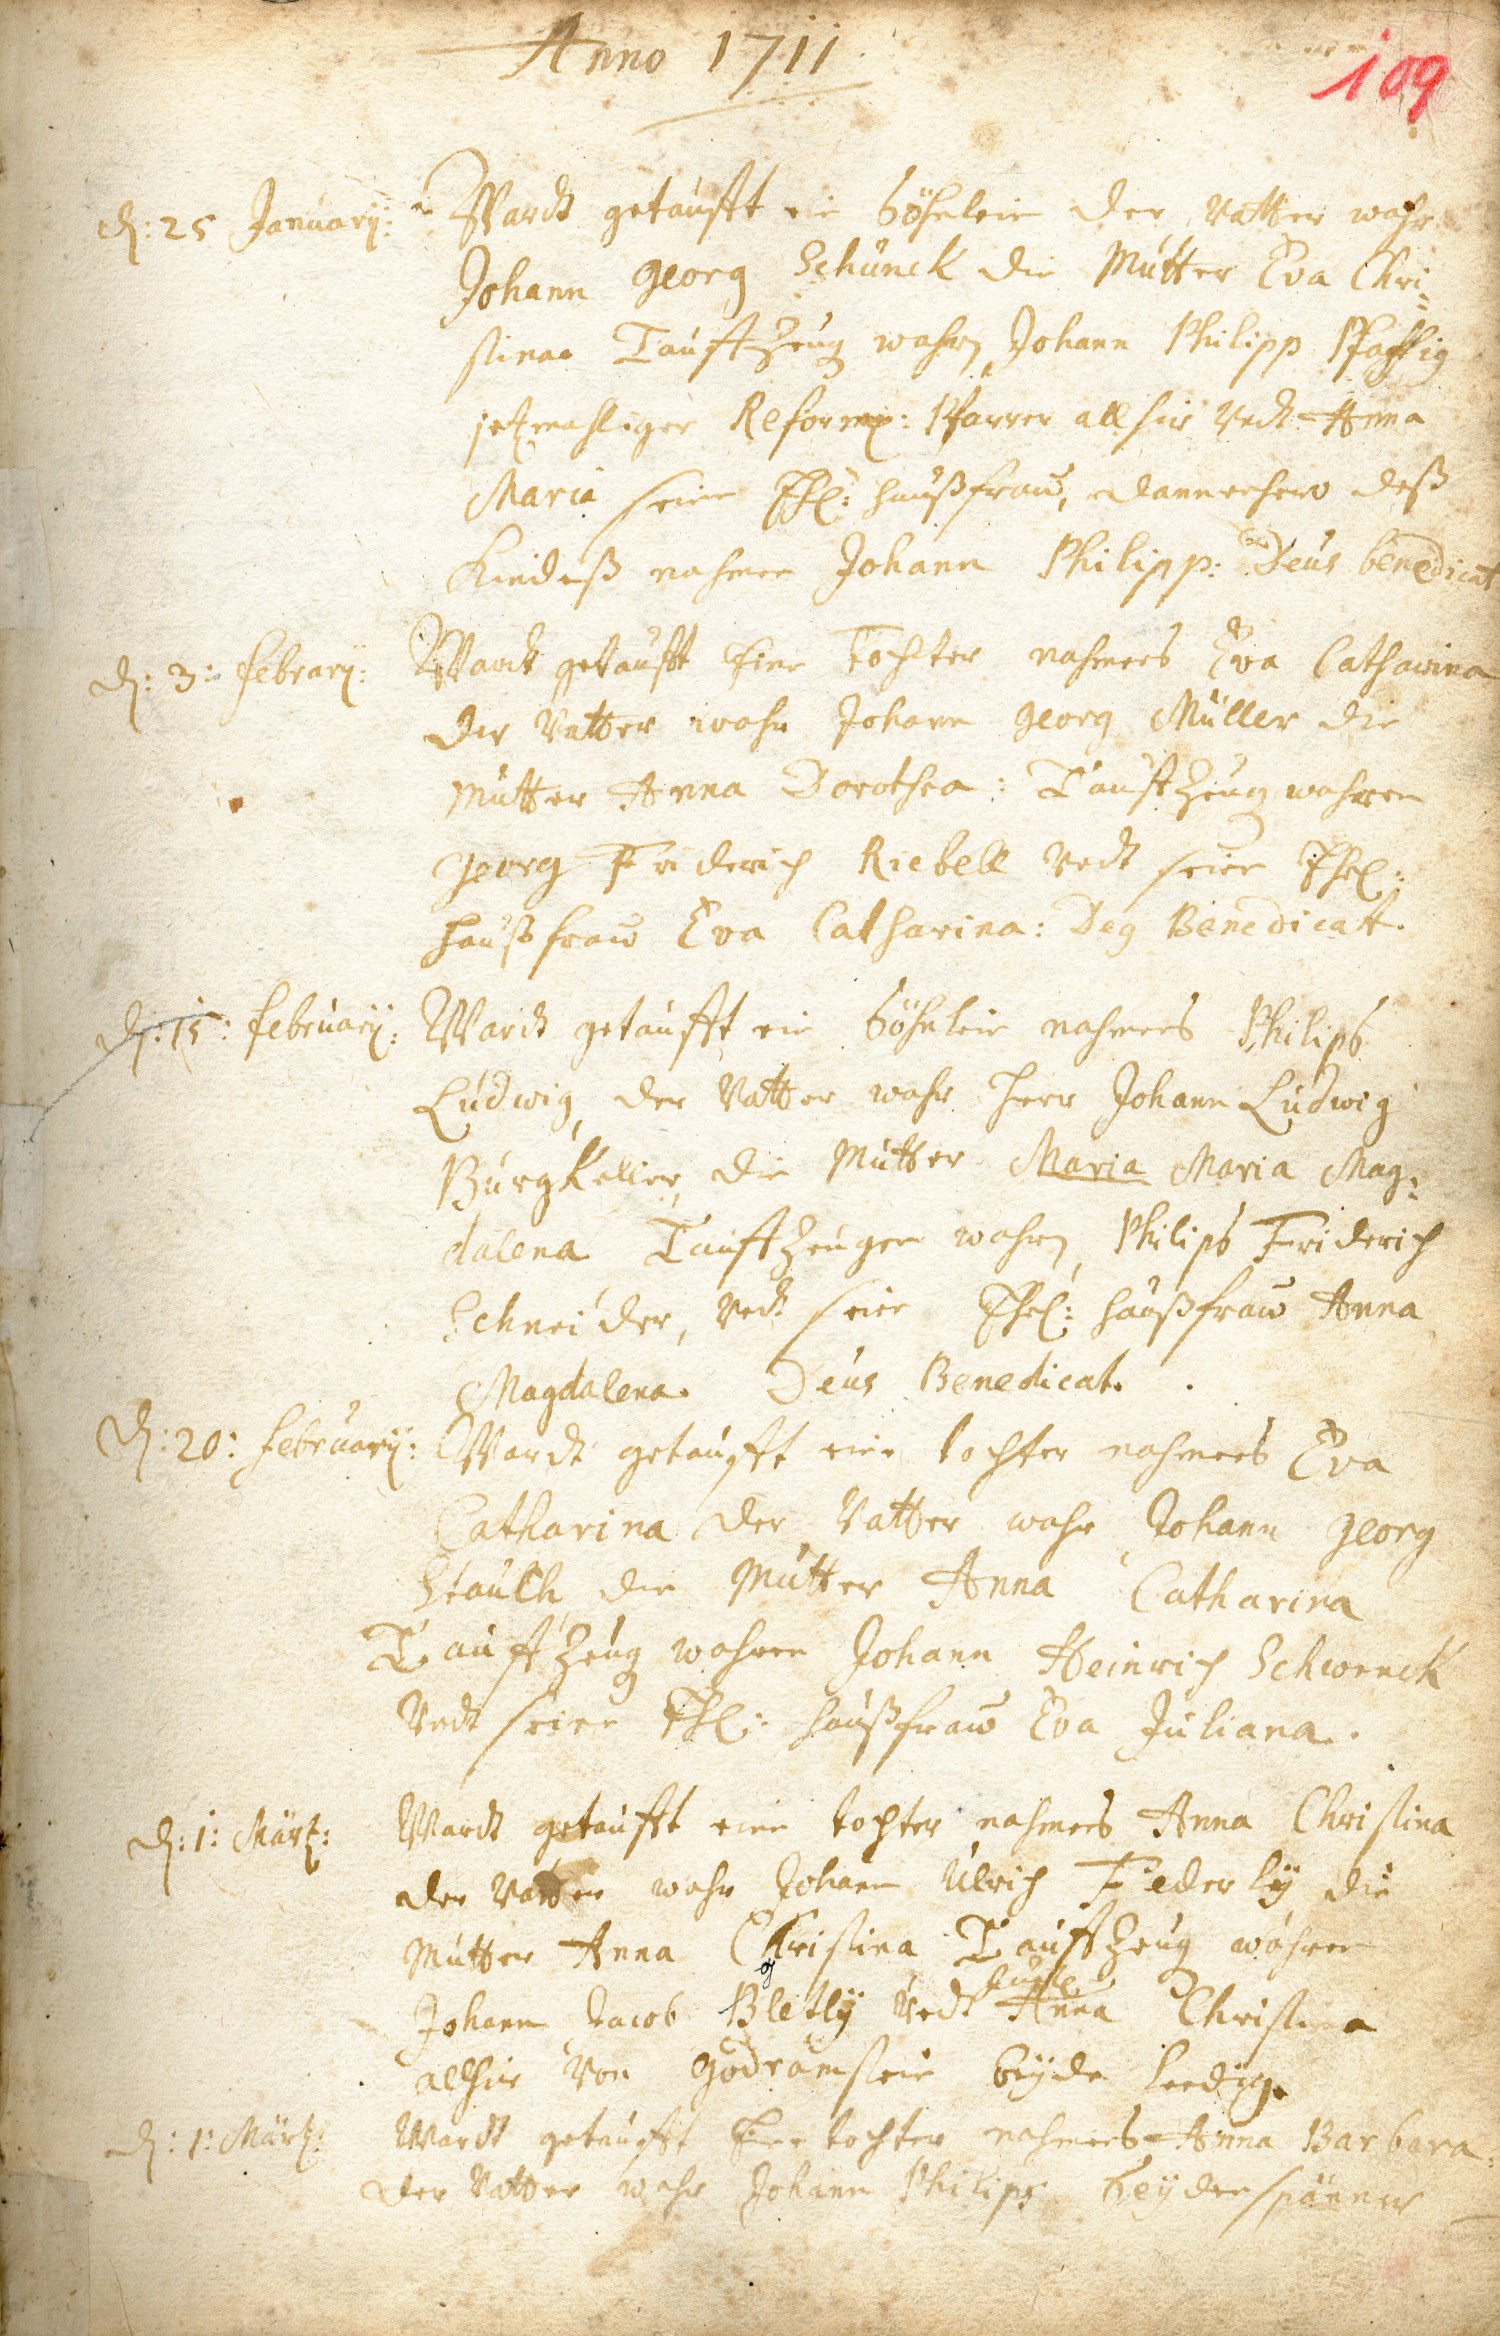 Anno 1711
109
d: 25 Januarÿ: Wardt getaufft ein Söhnlein der Vatter wahr
Johann Georg Schünck die Mutter Eva Chri-
stina Tauffzeug wahren Johann Philipp
jetzmahliger Reform: Pfarrer allhier Vndt Anna
Maria seine Ehl: haußfraw, dannenhero deß
Kindeß nahmen Johann Philipp: Deus benedicat
d: 3: febrarÿ: Wardt getaufft Eine Tochter nahmens Eva Catharina
der Vatter wahr Johann Georg Müller die
Mutter Anna Dorothea: Tauffzeug wahren
Georg Friderich Riebell Vndt seine Ehel:
haußfraw Eva Catharina: Deg Benedicatt.
d: 15: februarÿ: Wardt getaufft ein Söhnlein nahmens Philips
Ludwig, der Vatter wahr Herr Johann Ludwig
Burgkeller, die Mutter Maria Maria Mag-
dalena Tauffzeugen wahren Philips Friderich
Schneider, Vndt seine Ehel: haußfraw Anna
Magdalena. Deus Benedicat.
d: 20: februarÿ: Wardt getaufft eine tochter nahmens Eva
Catharina der Vatter wahr Johann Georg
Stauch die Mutter Anna Catharina
Tauffzeug wahren Johann Heinrich Schwenck
Vndt seine Ehl: haußfraw Eva Juliana.
d: 1: Märtz: Wardt getaufft eine tochter nahmens Anna Christina
der Vatter wahr Johann Ulrich Federlÿ die
Mutter Anna Christina Tauffzeug wahren
Johann Jacob Bletlÿ Vndt Anna Christina
allhier Von Godramstein beÿde leedig.
d: 1: Märtz: Wardt getaufft Eine tochter nahmens Anna Barbara
der Vatter wahr Johann Philips Heÿdenspänner